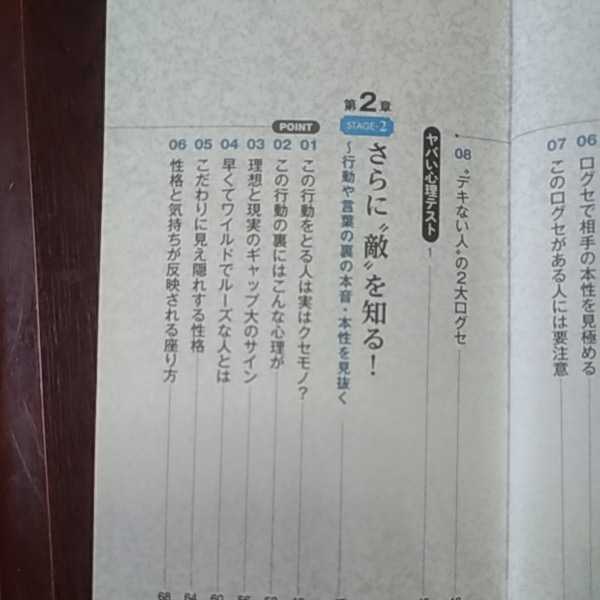 06 口グセで相手の本性を見極める
07 この口グセがある人には要注意
08 〝デキない人〟の2大口グセ
ヤバい心理テスト 1
第2章
STAGE-2
さらに〝敵〟を知る！
～行動や言葉の裏の本音・本性を見抜く
POINT
01 この行動をとる人は実はクセモノ？
02 この行動の裏にはこんな心理が
03 理想と現実のギャップ大のサイン
04 早くてワイルドでルーズな人とは
05 こだわりに見え隠れする性格
06 性格と気持ちが反映される座り方